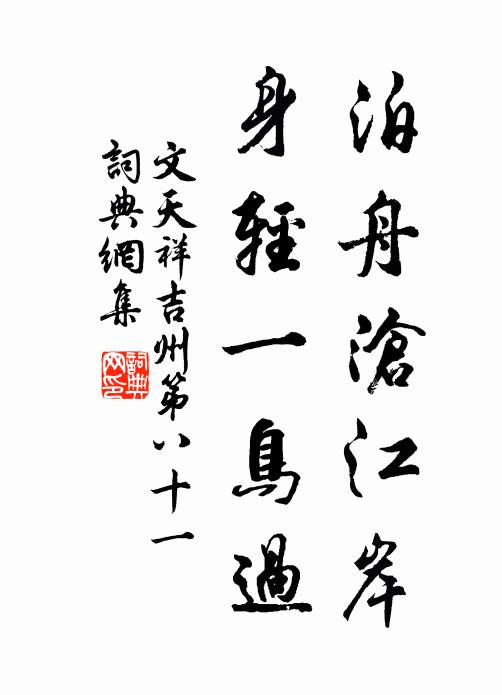 泊舟滄江岸
身輕一鳥過
文天祥吉州第八十一
詞典網集
詞典网印